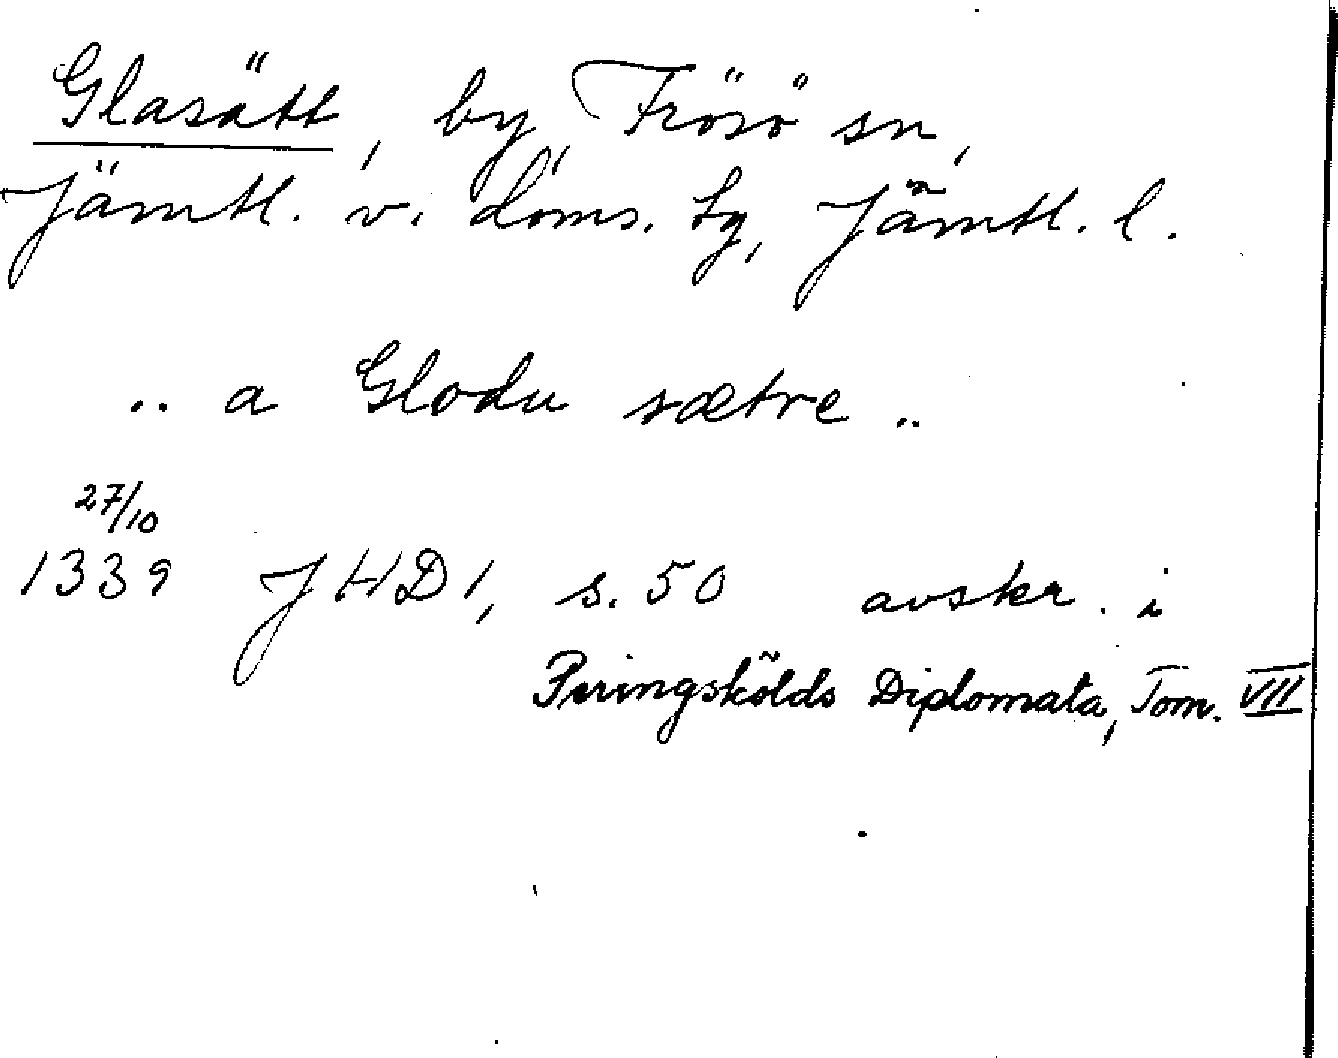 Glasätt, by, Frösö sn,
Jämtl. v. doms. tg, Jämtl. l.
.. a Glodu sætre ..
27/10
1339 JHD 1, s. 50 avskr. i
Peringskölds Diplomata, Tom. VII